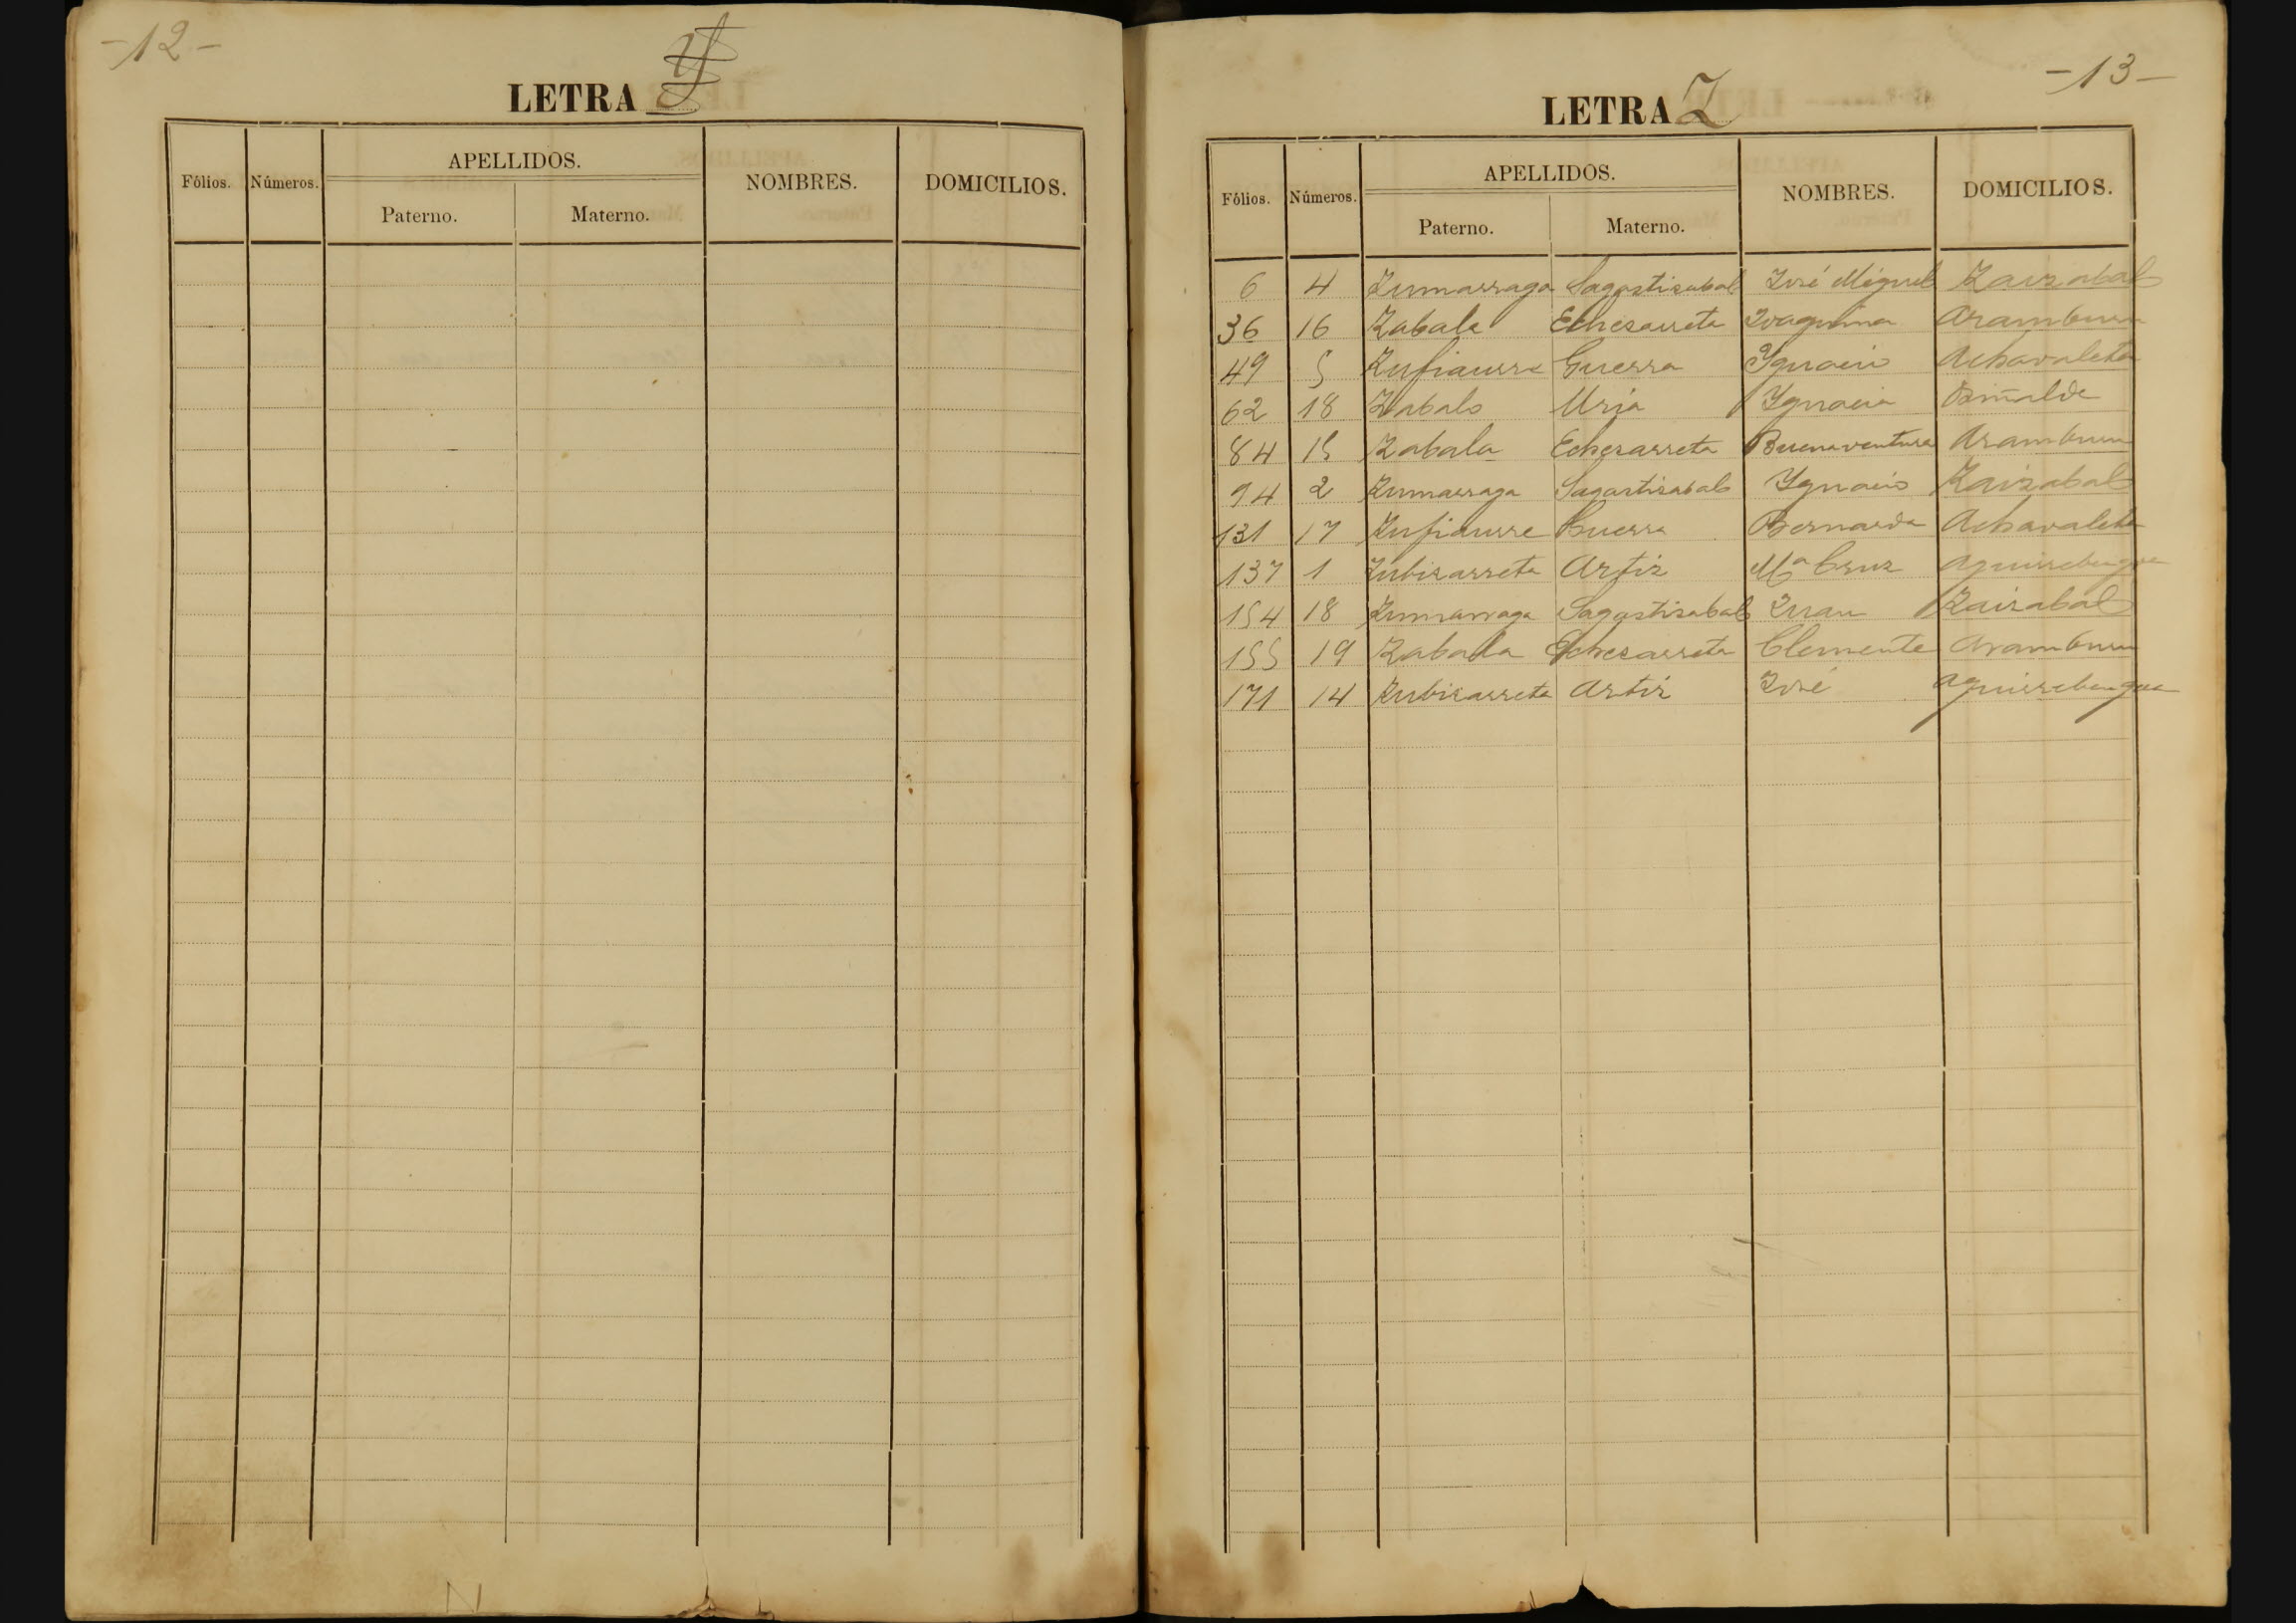 -12-
LETRA Y
Fólios. Números. APELLIDOS. NOMBRES. DOMICILIOS.
Paterno. Materno.
-13-
LETRA Z
Fólios. Números. APELLIDOS. NOMBRES. DOMICILIOS.
Paterno. Materno.
6 4 Zumarraga Sagastizabal José Miguel Zaizabal
36 16 Zabala Echezarreta Joaquina Aramburu
49 5 Zufiaurre Guerra Ygnacio Achavaleta
62 18 Zabalo Uria Ygnacia
84 15 Zabala Echezarreta Buenaventura Aramburu
94 2 Zumarraga Sagastizabal Ygnacio Zaizabal
131 17 Zufiaurre Guerra Bernarda Achavaleta
137 1 Zubizarreta Artiz Mª Cruz Aguirrebengoa
154 18 Zumarraga Sagastizabal Juan Zaizabal
155 19 Zabala Echezarreta Clemente Aramburu
171 14 Zubizarreta Artiz José Aguirrebengoa